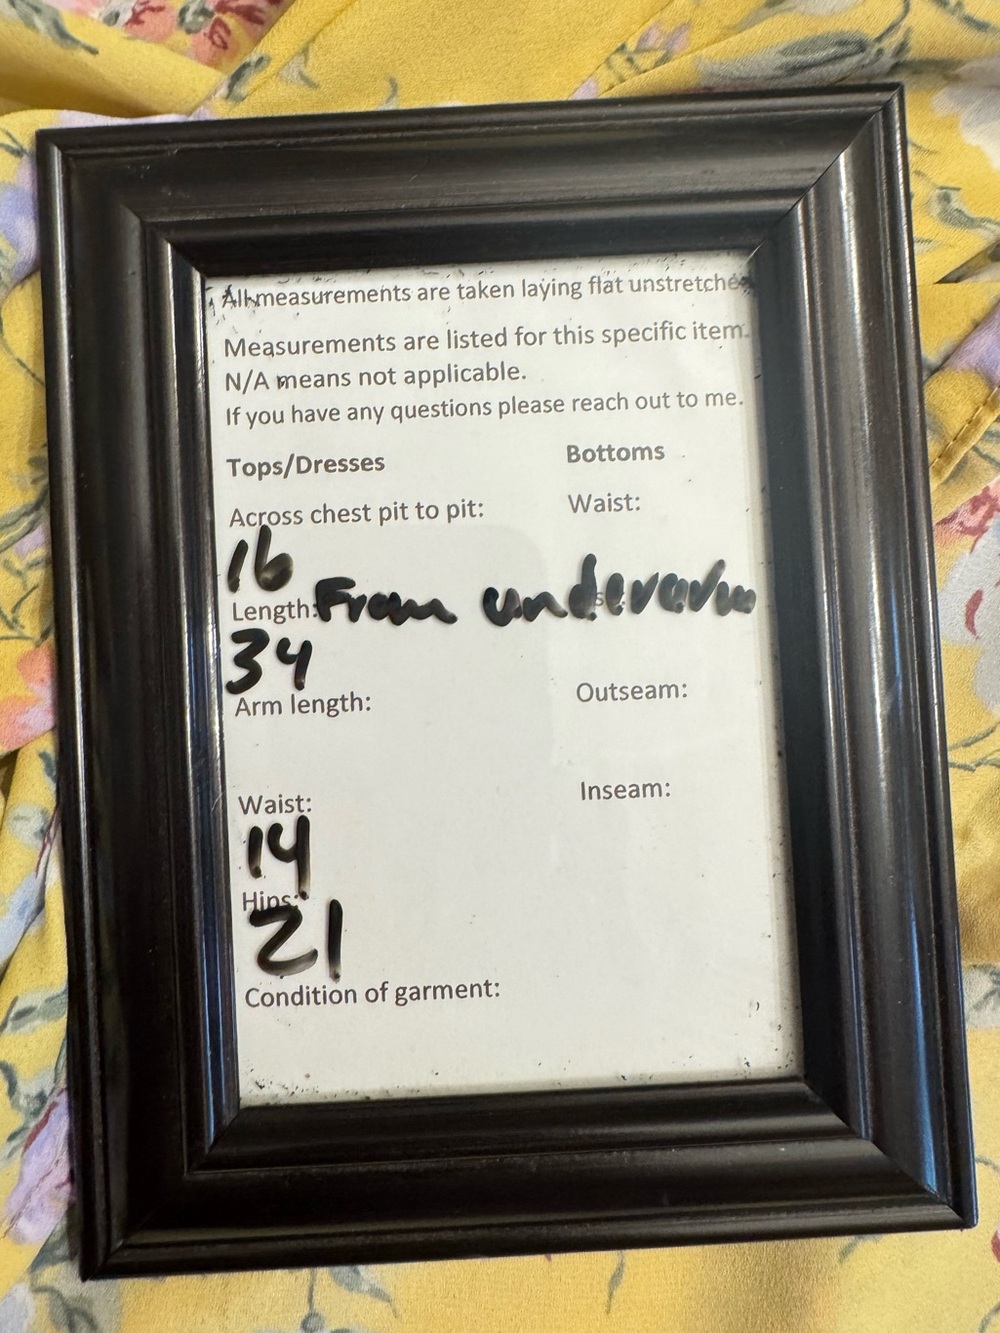 All measurements are taken laying flat unstretched
Measurements are listed for this specific item.
N/A means not applicable.
If you have any questions please reach out to me.
Tops/Dresses
Bottoms
Across chest pit to pit:
Waist:
16
Length: From underarm
34
Arm length:
Outseam:
Waist:
Inseam:
14
Hips:
21
Condition of garment: